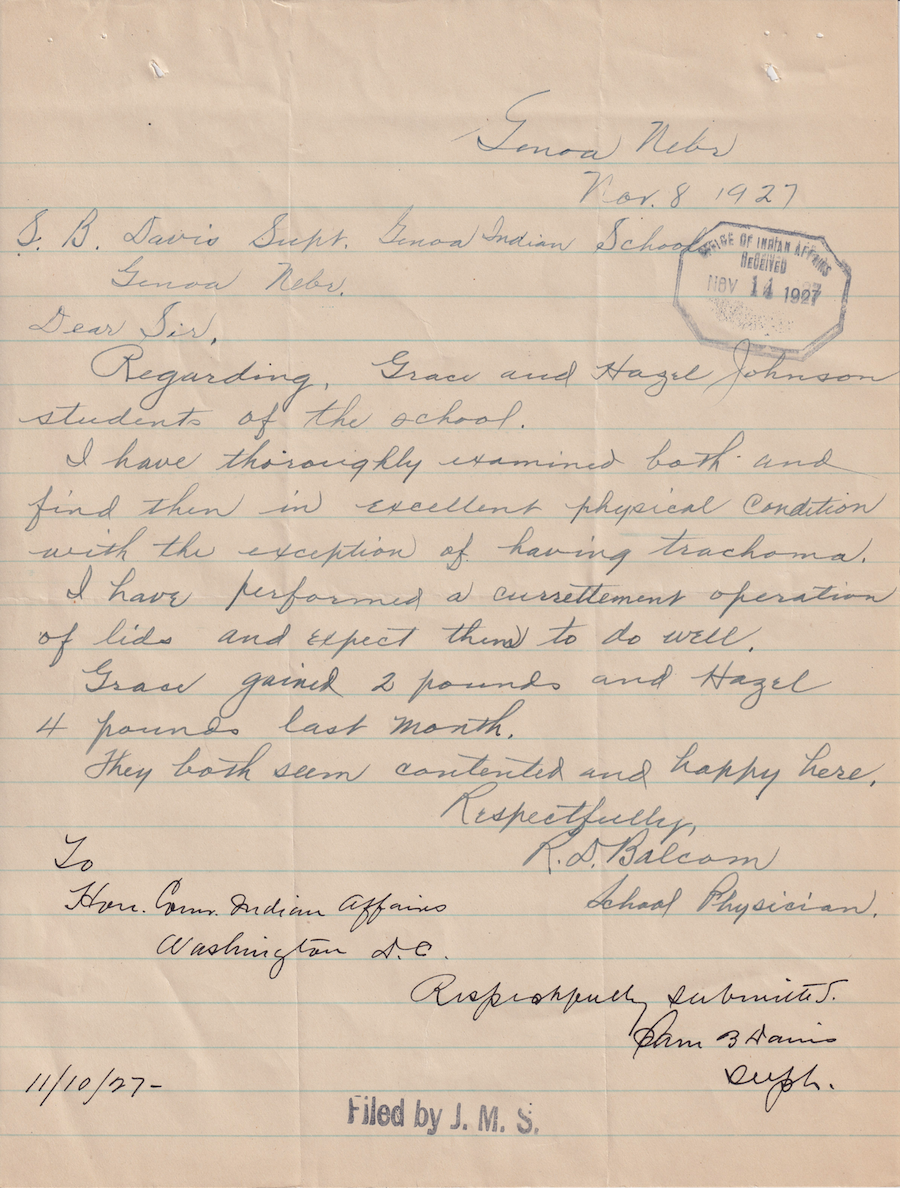 Genoa Nebr
Nov. 8 1927
S. B. Davis Supt. Genoa Indian School
Genoa Nebr.
OFFICE OF INDIAN AFFAIRS
RECEIVED
NOV 14 1927
Dear Sir,
Regarding, Grace and Hazel Johnson
students of the school.
I have thoroughly examined both and
find then in excellent physical condition
with the exception of having trachoma.
I have performed a currettement operation
of lids and expect them to do well.
Grace gained 2 pounds and Hazel
4 pounds last month.
They both seem contented and happy here.
Respectfully,
R. D. Balcom
School Physician.
To
Hon. Comr. Indian Affairs
Washington D.C.
Respectfully submitted.
Sam B Davis
Supt.
11/10/27-
Filed by J. M. S.